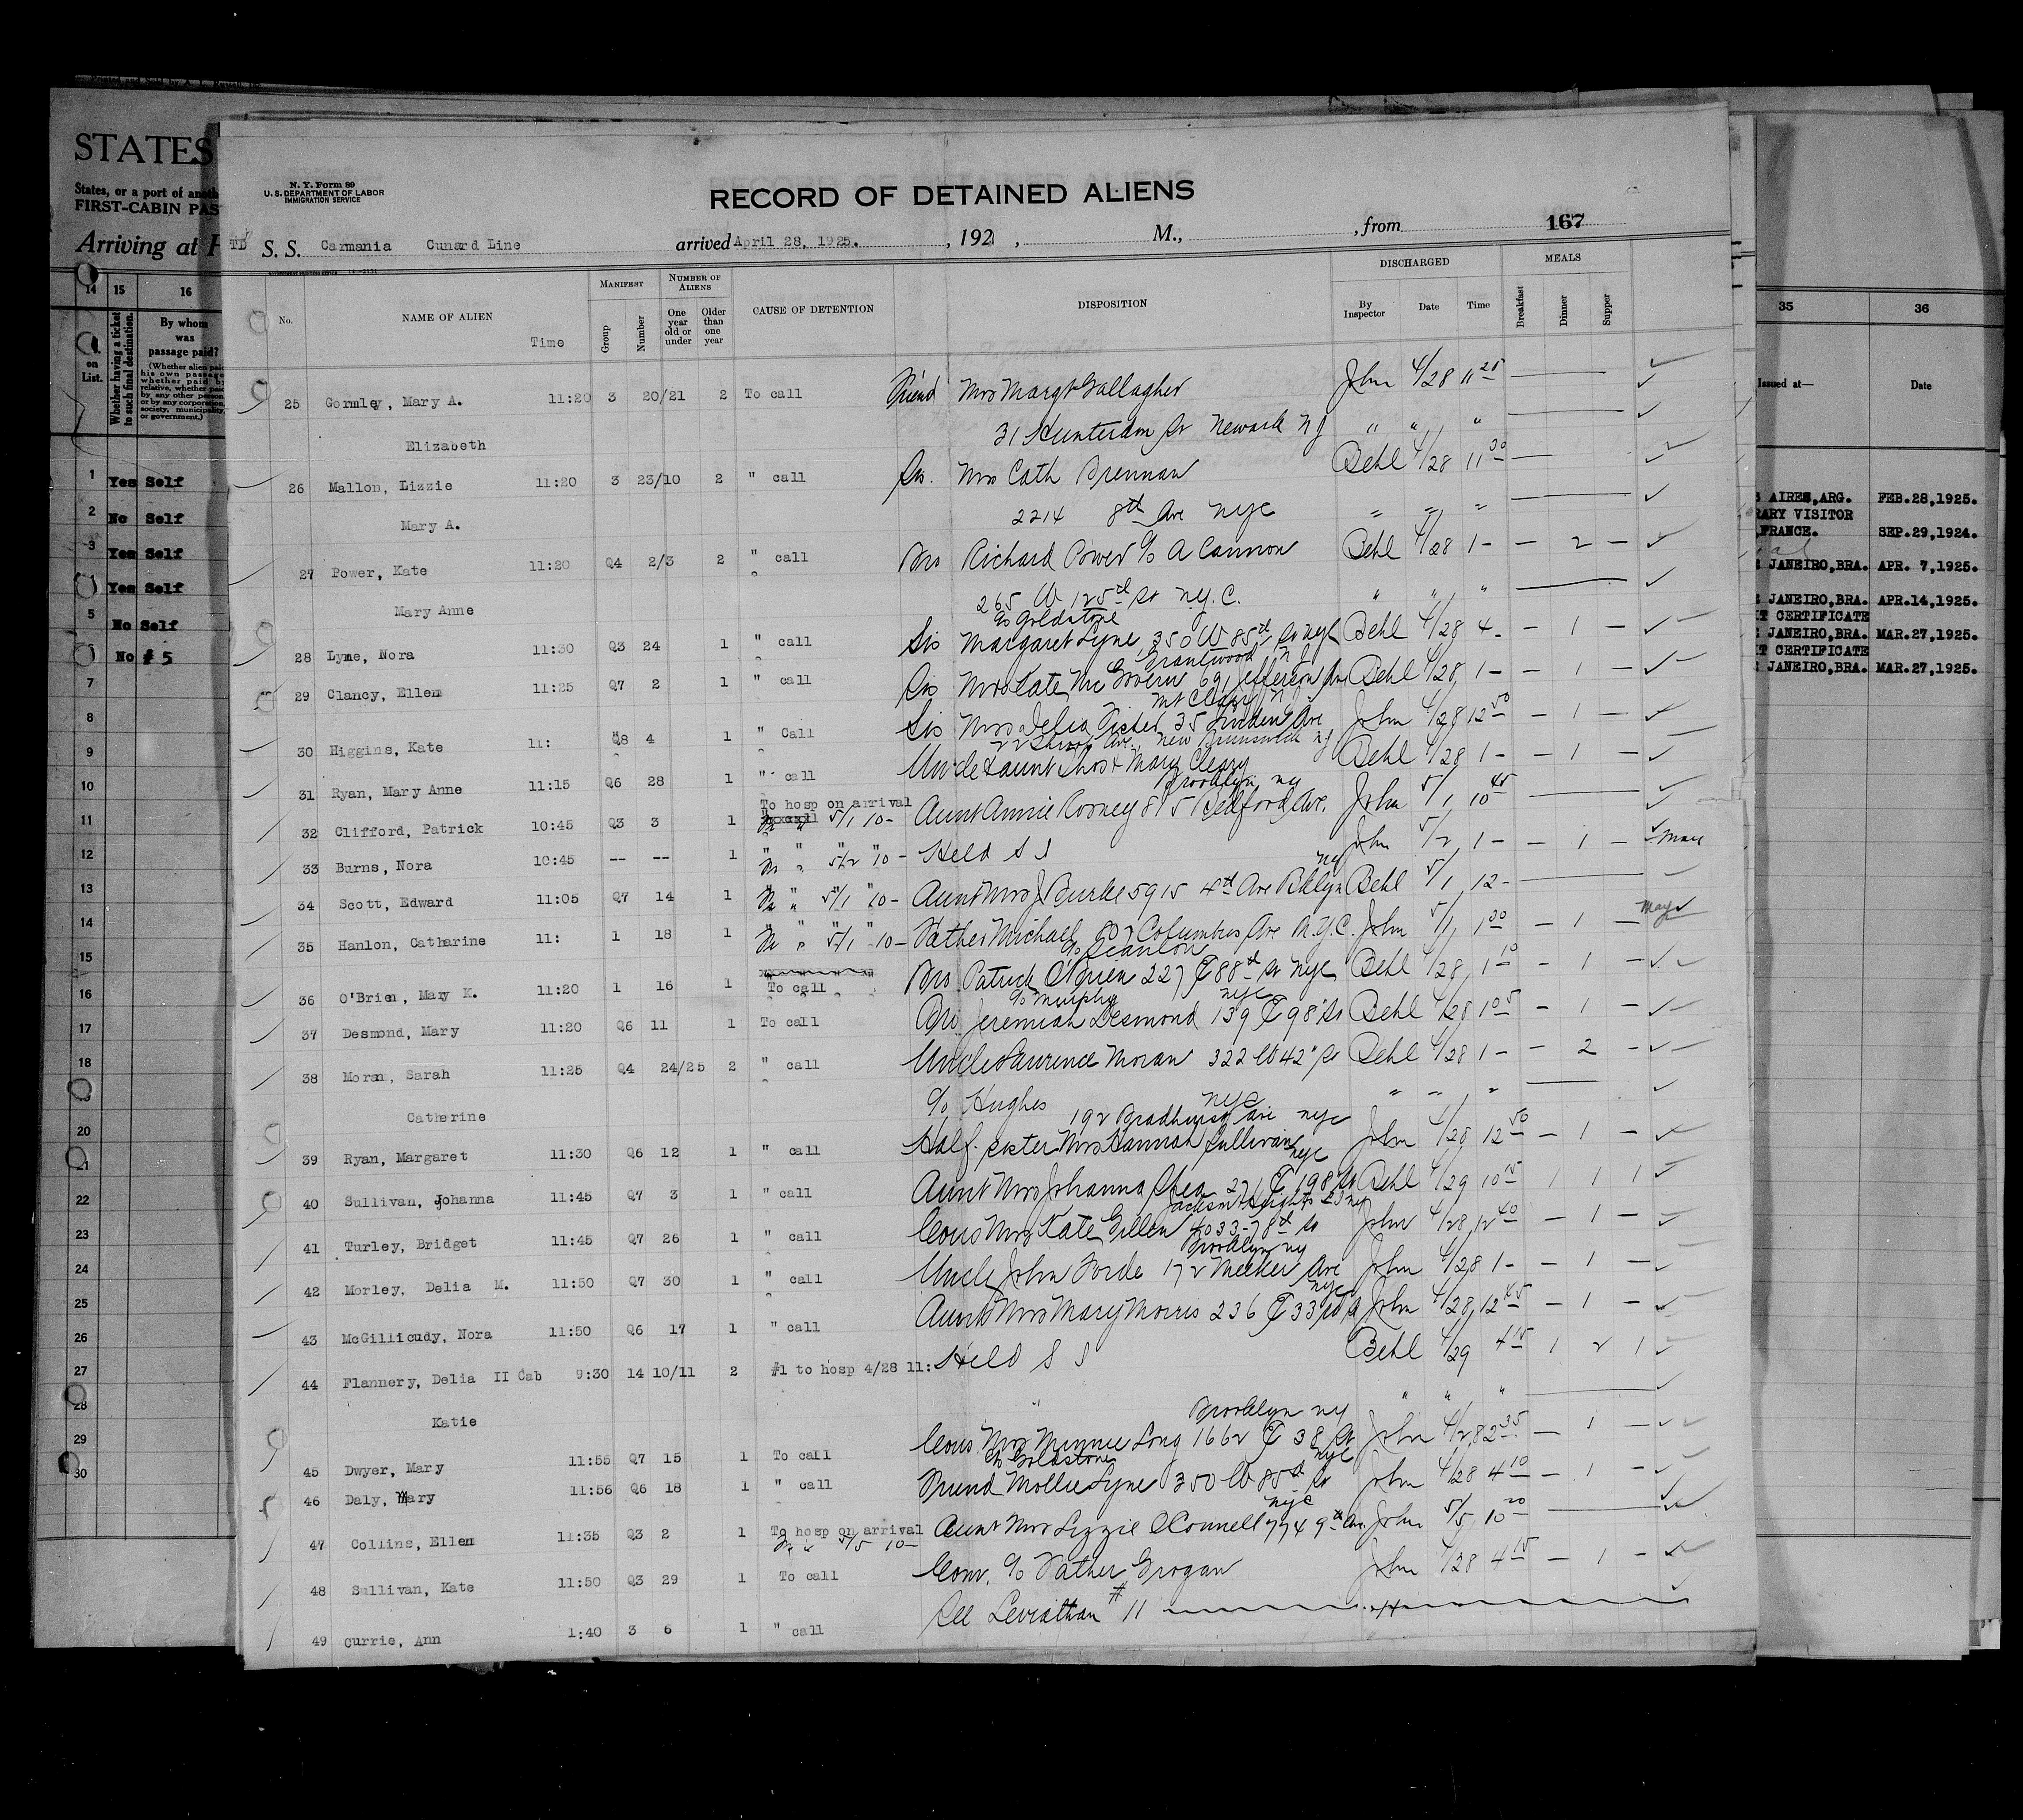 STATES
States, or a port of anoth
FIRST-CABIN PAS
Arriving at
N. Y. Form 89
U. S. DEPARTMENT OF LABOR
IMMIGRATION SERVICE
RECORD OF DETAINED ALIENS
167
TD S. S. Carmania Cunard Line arrived April 28, 1925. , 192 , M., , from
No. NAME OF ALIEN Time MANIFEST Group Number NUMBER OF ALIENS One year old or under Older than one year CAUSE OF DETENTION DISPOSITION DISCHARGED By Inspector Date Time MEALS Breakfast Dinner Supper
25 Gormley, Mary A. 11:20 3 20/21 2 To call Friend Mrs Margt Gallagher John 4/28 11 25
Elizabeth 31 Hunterdon St Newark NJ " " "
26 Mallon, Lizzie 11:20 3 23/10 2 " call Sis. Mrs Cath Brennan Behl 4/28 11 30 —
Mary A. 2214 8th Ave NYC " " "
27 Power, Kate 11:20 Q4 2/3 2 " call Bro Richard Power c/o A Cannon Behl 4/28 1 - — 2 —
Mary Anne 265 W 125th St N.Y.C. " " "
c/o Goldstone
28 Lyne, Nora 11:30 Q3 24 1 " call Sis Margaret Lyne, 350 W 85th St NYC Behl 4/28 4 - — 1 —
Grantwood NJ
29 Clancy, Ellen 11:25 Q7 2 1 " call Sis Mrs Kate McGovern 69 Jefferson Ave Behl 4/28 1 - — 1 —
30 Higgins, Kate 11: Q8 4 1 " Call Sis Mrs Delia 35 Linden Ave John 4/28 12 50 — 1 —
Ave., New Brunswick NJ
31 Ryan, Mary Anne 11:15 Q6 28 1 " call Uncle & aunt Thos & Mary Cleary Behl 4/28 1 - — 1 —
Brooklyn NY
32 Clifford, Patrick 10:45 Q3 3 1 To hosp on arrival 5/1 10 - Aunt Annie Rooney 815 Bedford Ave. John 5/1 10 45
33 Burns, Nora 10:45 -- -- 1 " " 5/2 "10 - Held S I John 5/2 1 - — 1 —
NY
34 Scott, Edward 11:05 Q7 14 1 " " 5/1 "10 - Aunt Mrs J Burke 5915 4th Ave Bklyn Behl 5/1 12 -
35 Hanlon, Catharine 11: 1 18 1 " " 5/1 "10 - Father Michael 807 Columbus Ave N.Y.C. John 5/1 1 30 — 1 —
c/o Scanlon
36 O'Brien, Mary K. 11:20 1 16 1 To call Bro Patrick O'Brien 227 E 88th St NYC Behl 4/28 1 10 — 1 —
c/o Murphy NYC
37 Desmond, Mary 11:20 Q6 11 1 To call Bro Jeremiah Desmond 139 E 98" St Behl 4/28 1 05 — 1 —
38 Moran, Sarah 11:25 Q4 24/25 2 " call Uncle Laurence Moran 322 W 42" St Behl 4/28 1 - — 2 —
Catherine c/o Hughes NYC " " "
192 Bradhurst Ave NYC
39 Ryan, Margaret 11:30 Q6 12 1 " call Half-sister Mrs Hannah Sullivan John 4/28 12 50 — 1 —
NYC
40 Sullivan, Johanna 11:45 Q7 3 1 " call Aunt Mrs Johanna Shea 271 E 198 St Behl 4/29 10 15 1 1 1
Jackson Heights LI NY
41 Turley, Bridget 11:45 Q7 26 1 " call Cous Mrs Kate Gillen 4033-78th St John 4/28 12 40 — 1 —
Brooklyn NY
42 Morley, Delia M. 11:50 Q7 30 1 " call Uncle John Forde 172 Meeker Ave John 4/28 1 - — 1 —
NYC
43 McGillicudy, Nora 11:50 Q6 17 1 " call Aunt Mrs Mary Morris 236 E 33rd St John 4/28 12 45 — 1 —
44 Flannery, Delia II Cab 9:30 14 10/11 2 #1 to hosp 4/28 11: Held S I Behl 4/29 4 15 1 2 1
Katie " " "
Brooklyn NY
45 Dwyer, Mary 11:55 Q7 15 1 To call Cous. Mrs Minnie Long 1662 E 38 St John 4/28 2 35 — 1 —
c/o Goldstone NYC
46 Daly, Mary 11:56 Q6 18 1 " call Friend Mollie Lyne 350 W 85th St John 4/28 4 10 — 1 —
NYC
47 Collins, Ellen 11:35 Q3 2 1 To hosp on arrival 5/5 10 — Aunt Mrs Lizzie OConnell 774 9th Ave. John 5/5 10 20
48 Sullivan, Kate 11:50 Q3 29 1 To call Conv. c/o Father Grogan John 4/28 4 15 — 1 —
49 Currie, Ann 1:40 3 6 1 " call See Leviathan #11
14 15 16
on List.
Whether having a ticket to such final destination.
By whom was passage paid?
(Whether alien paid his own passage, whether paid by relative, whether paid by any other person, or by any corporation, society, municipality, or government.)
1 Yes Self
2 No Self
3 Yes Self
Yes Self
5 No Self
No # 5
7
8
9
10
11
12
13
14
15
16
17
18
20
21
22
23
24
25
26
27
28
29
30
35 36
Issued at— Date
AIRES,ARG. FEB.28,1925.
RARY VISITOR
,FRANCE. SEP.29,1924.
JANEIRO,BRA. APR. 7,1925.
JANEIRO,BRA. APR.14,1925.
T CERTIFICATE
JANEIRO,BRA. MAR.27,1925.
T CERTIFICATE
JANEIRO,BRA. MAR.27,1925.